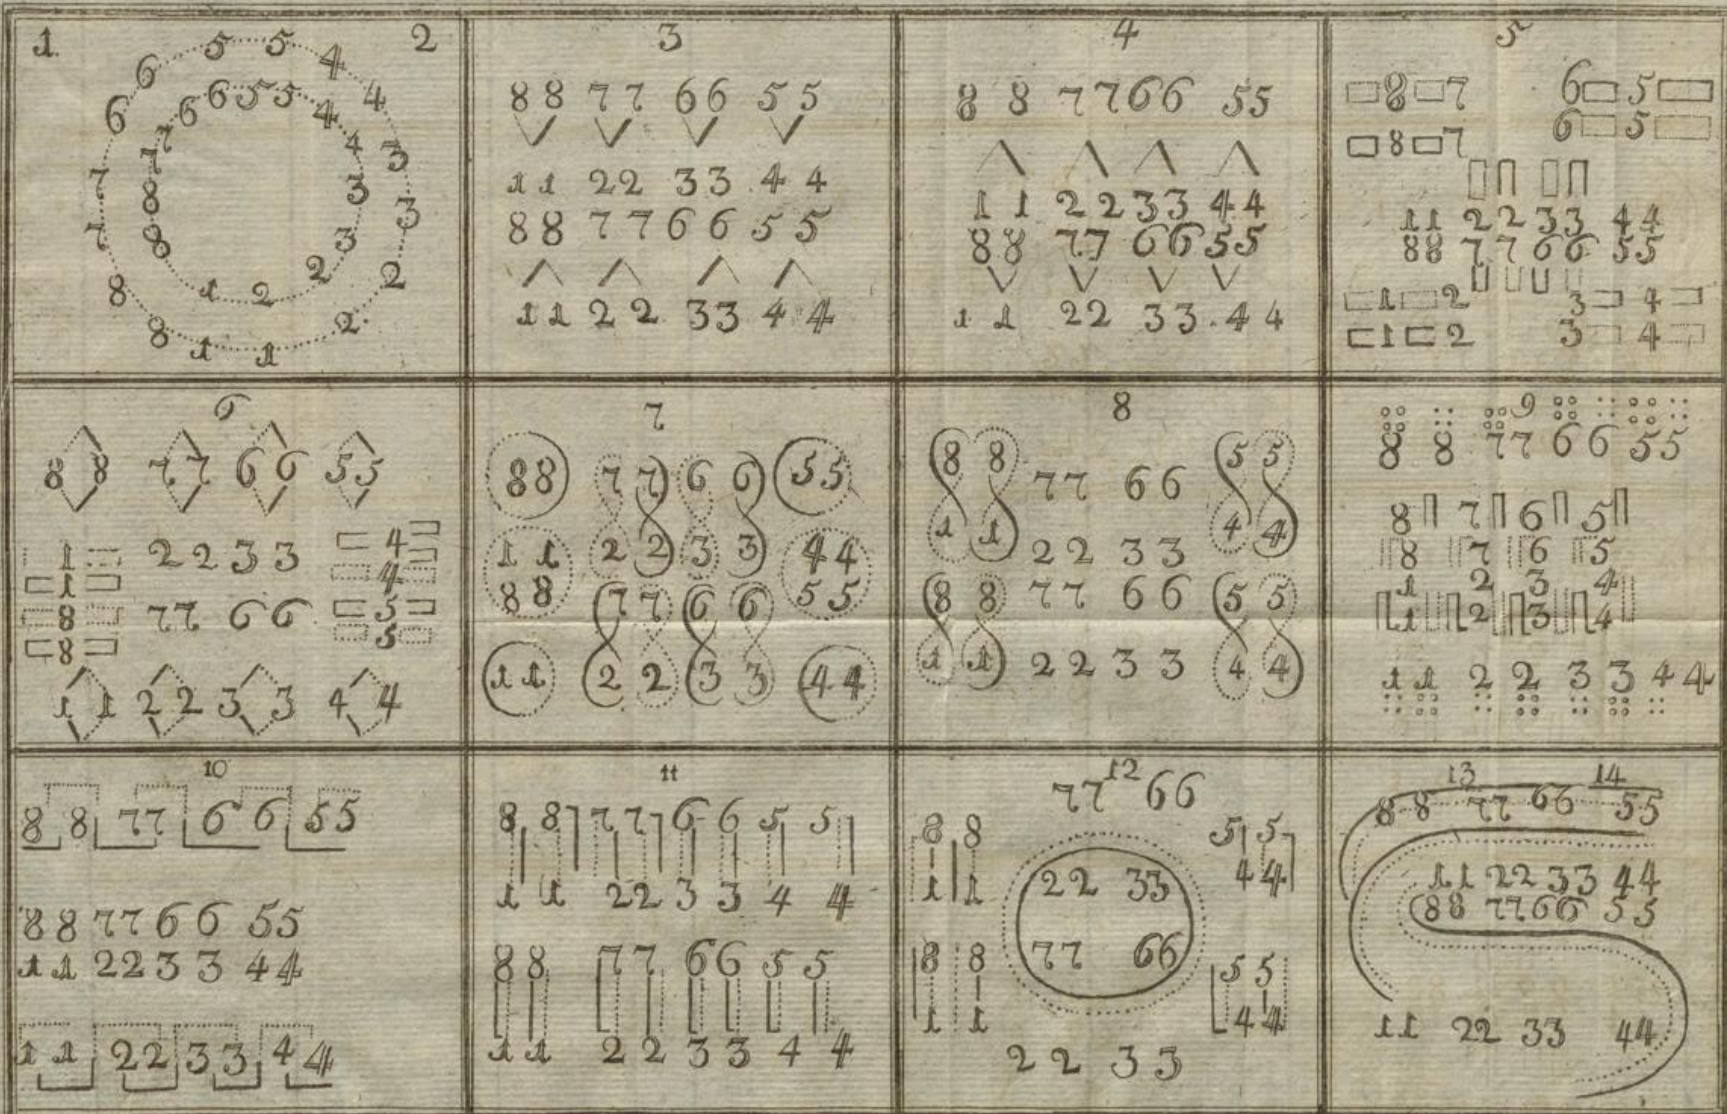 1 2
5 5 4
6 4
6 6 5 5 4
6 6
7 4 3
7
7 8 3 3
7 8 3
8 1 2 2 2
8 1 1 2
3
8 8 7 7 6 6 5 5
1 1 2 2 3 3 4 4
8 8 7 7 6 6 5 5
1 1 2 2 3 3 4 4
4
8 8 7 7 6 6 5 5
1 1 2 2 3 3 4 4
8 8 7 7 6 6 5 5
1 1 2 2 3 3 4 4
5
8 7 6 5
6 5
8 7
1 1 2 2 3 3 4 4
8 8 7 7 6 6 5 5
1 2 3 4
1 2 3 4
6
8 8 7 7 6 6 5 5
1 2 2 3 3 4
1 4
8 7 7 6 6 5
8 5
1 1 2 2 3 3 4 4
7
8 8 7 7 6 6 5 5
1 1 2 2 3 3 4 4
8 8 7 7 6 6 5 5
1 1 2 2 3 3 4 4
8
8 8 7 7 6 6 5 5
1 1 2 2 3 3 4 4
8 8 7 7 6 6 5 5
1 1 2 2 3 3 4 4
9
8 8 7 7 6 6 5 5
8 7 6 5
8 7 6 5
1 2 3 4
1 2 3 4
1 1 2 2 3 3 4 4
10
8 8 7 7 6 6 5 5
8 8 7 7 6 6 5 5
1 1 2 2 3 3 4 4
1 1 2 2 3 3 4 4
11
8 8 7 7 6 6 5 5
1 1 2 2 3 3 4 4
8 8 7 7 6 6 5 5
1 1 2 2 3 3 4 4
12
7 7 6 6
8 8 5 5
1 1 2 2 3 3 4 4
8 8 7 7 6 6 5 5
1 1 4 4
2 2 3 3
13 14
8 8 7 7 6 6 5 5
1 1 2 2 3 3 4 4
8 8 7 7 6 6 5 5
1 1 2 2 3 3 4 4